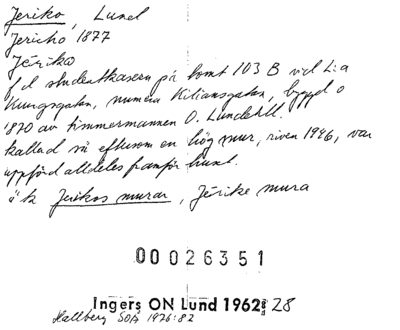 Jeriko, Lund
Jericho 1877
Jérika
f d studentkasern på tomt 103 B vid L:a
Kungsgatan, numera Kiliansgatan, byggd o
1820 av timmermannen O. Lundahl.
kallad så eftersom en hög mur, riven 1926, var
uppförd alldeles framför huset.
ä k Jerikos murar, Jérike mura
00026351
Ingers ON Lund 1962 s 28
Hallberg SOÄ 1976:82